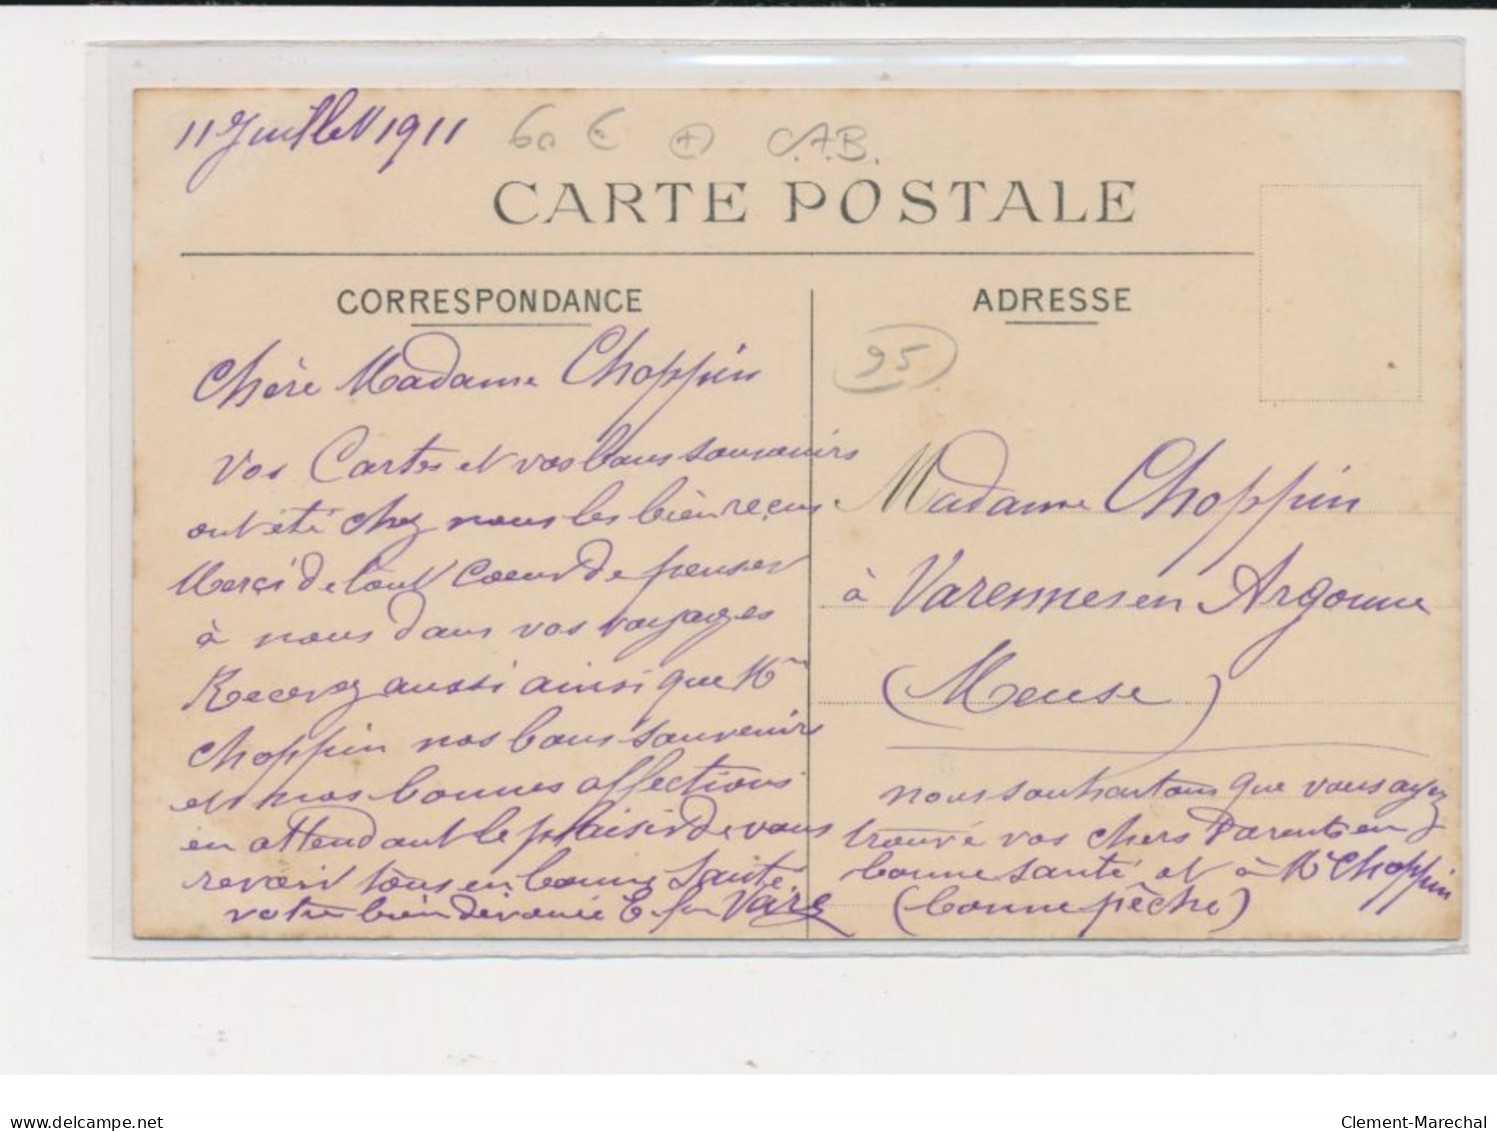 11 Juillet 1911
60 € C.A.B.
CARTE POSTALE
CORRESPONDANCE
Chère Madame Choppin
Vos Cartes et vos bons souvenirs
ont été chez nous les bien reçus.
Merci de tout Coeur de penser
à nous dans vos voyages
Recevez aussi ainsi que Mr
Choppin nos bons souvenirs
et nos bonnes affections
en attendant le plaisir de vous
revoir tous en bonne Santé.
votre bien dévouée
ADRESSE
95
Madame Choppin
à Varennes en Argonne
(Meuse)
nous souhaitons que vous ayez
trouvé vos chers Parents en
bonne santé et à Mr Choppin
(bonne pêche)
delcampe.net
Clement-Marechal